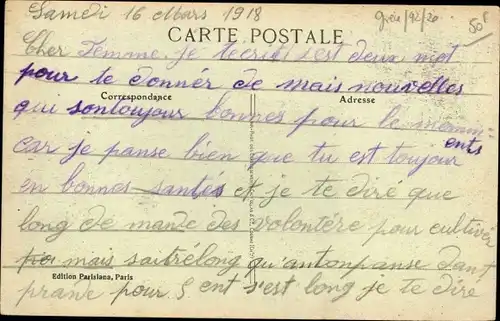 Samedi 16 Mars 1918
CARTE POSTALE
Cher Femme je tecrit s'est deux mot
pour te donnér de mais nouvelles
Correspondance
Adresse
qui sontoujour bonnes pour le momm-
ents
car je panse bien que tu est toujour
en bonnes santés et je te diré que
long de mande des volontére pour cultivér
mais saitrélong qu'antonpanse dant
Edition Parisiana, Paris
prande pour 5 ent s'est long je te diré